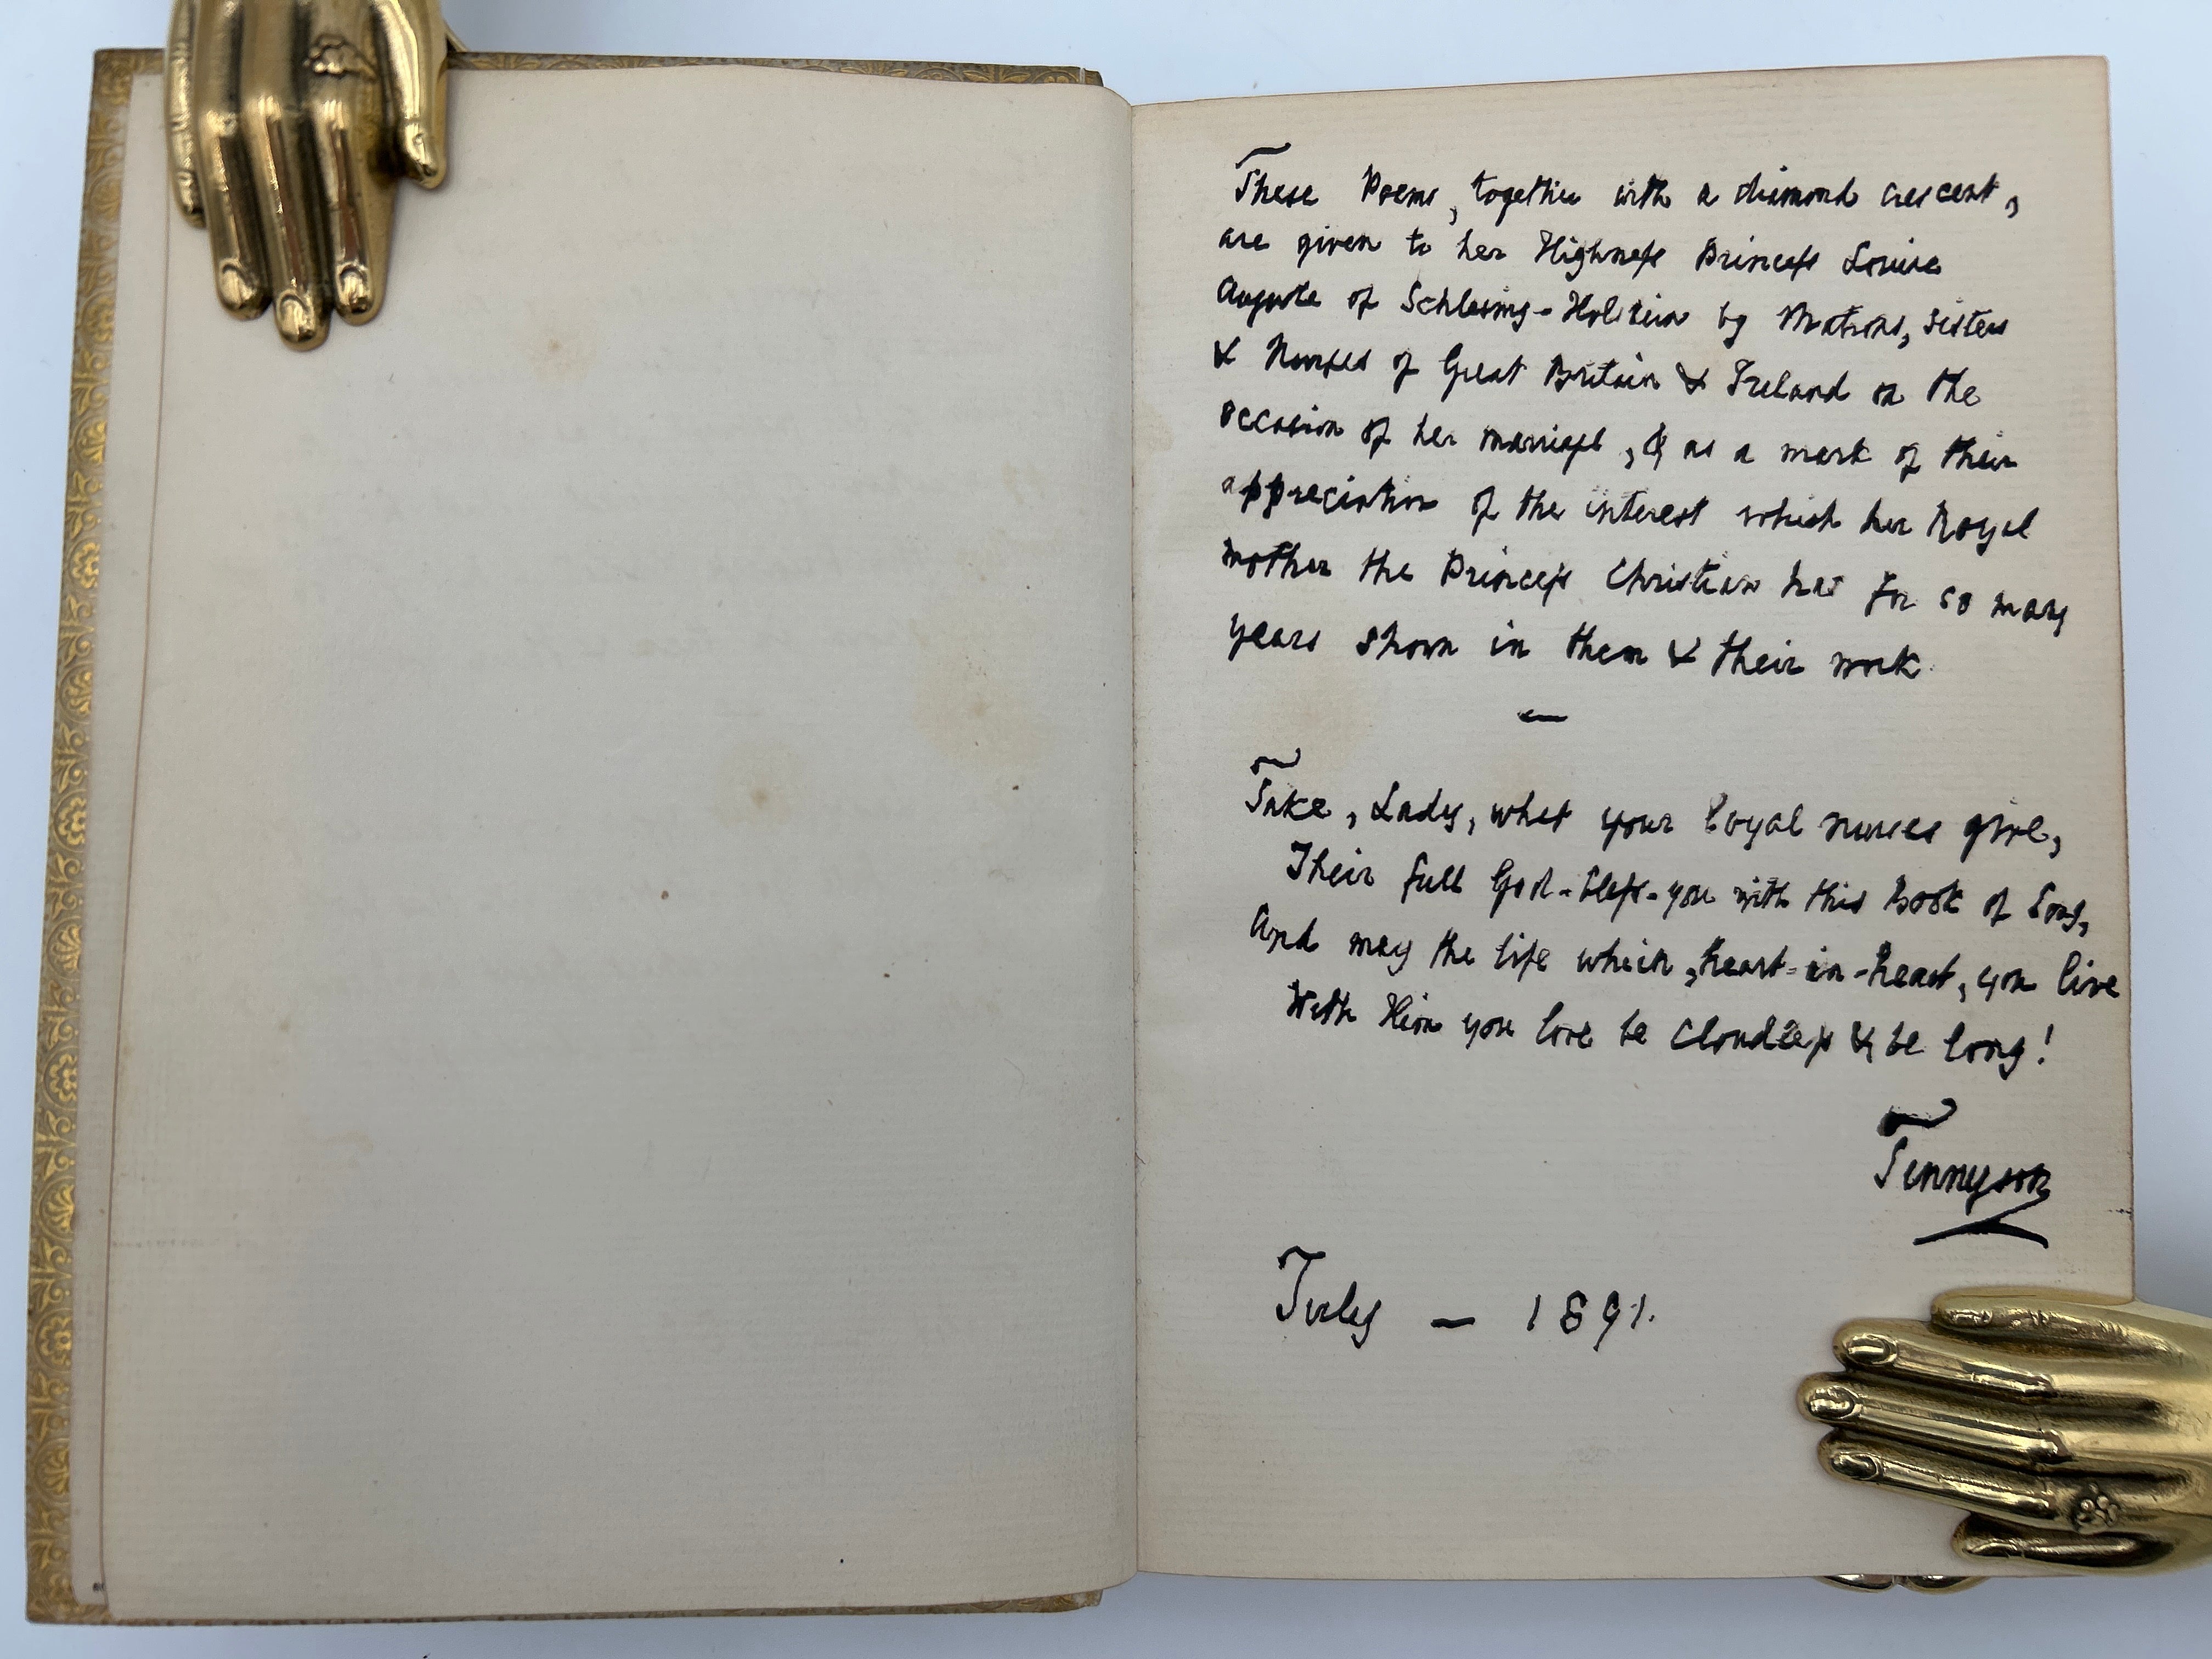 These Poems, together with a diamond crescent,
are given to her Highness Princess Louise
Auguste of Schleswig-Holstein by Matrons, Sisters
& Nurses of Great Britain & Ireland on the
occasion of her marriage, & as a mark of their
appreciation of the interest which her Royal
mother the Princess Christian has for so many
years shown in them & their work.
—
Take, Lady, what your loyal nurses give,
Their full God-bless-you with this Book of Song,
And may the life which, heart-in-heart, you live
With Him you love be cloudless & be long!
Tennyson
July — 1891.